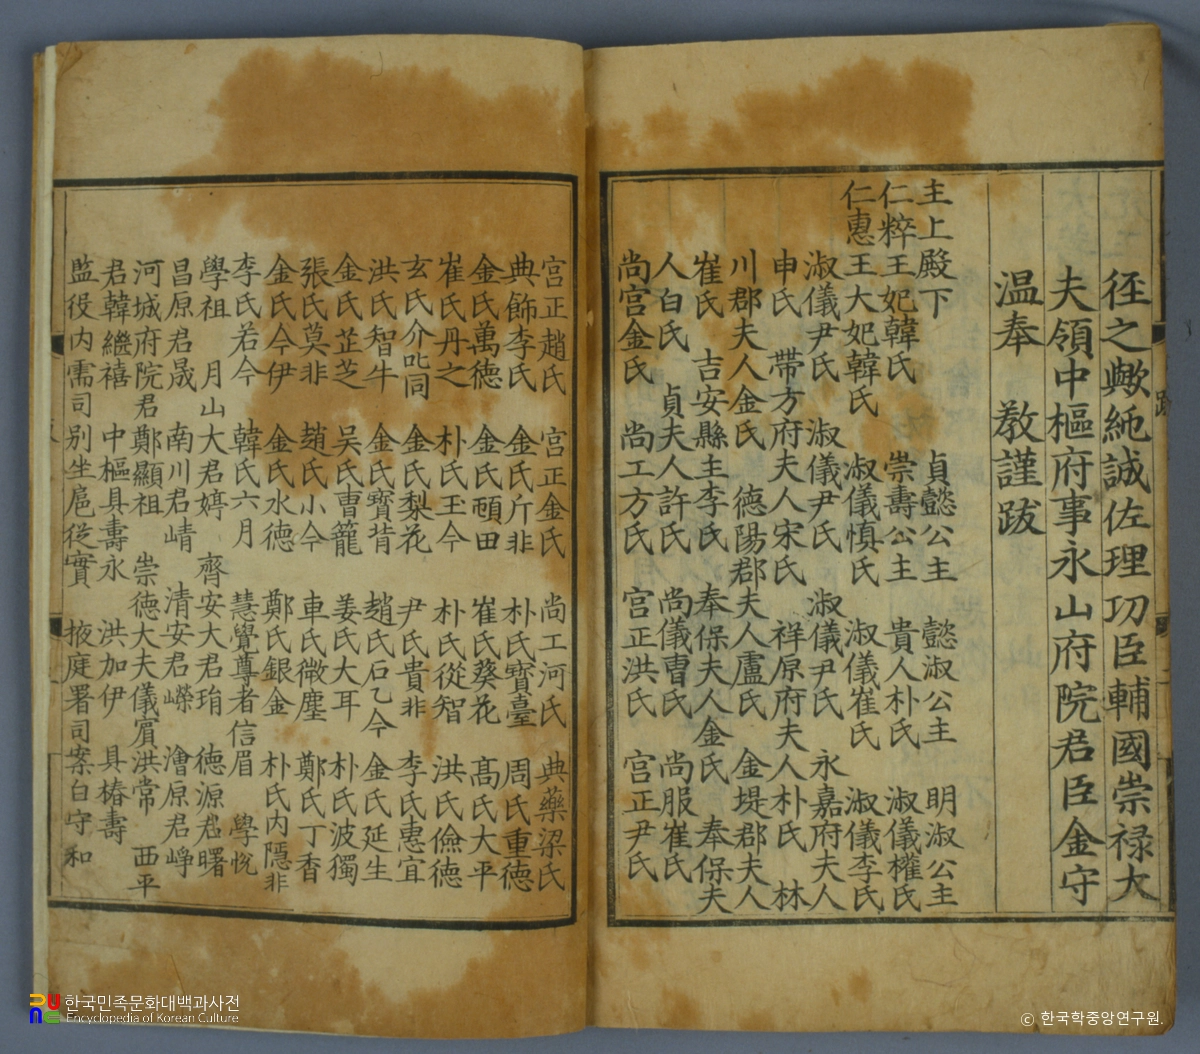 徑之歟純誠佐理功臣輔國崇禄大
夫領中樞府事永山府院君臣金守
温奉 敎謹跋
主上殿下 貞懿公主 懿淑公主 明淑公主
仁粹王妃韓氏 崇壽公主 貴人朴氏 淑儀權氏
仁惠王大妃韓氏 淑儀愼氏 淑儀崔氏 淑儀李氏
淑儀尹氏 淑儀尹氏 淑儀尹氏 永嘉府夫人
申氏 帶方府夫人宋氏 祥原府夫人朴氏 林
川郡夫人金氏 德陽郡夫人盧氏 金堤郡夫人
崔氏 吉安縣主李氏 奉保夫人金氏 奉保夫
人白氏 貞夫人許氏 尚儀曺氏 尚服崔氏
尚宮金氏 尚工方氏 宮正洪氏 宮正尹氏
宮正趙氏 宮正金氏 尚工河氏 典藥梁氏
典飾李氏 金氏斤非 朴氏寳臺 周氏重德
金氏萬德 金氏頓田 崔氏葵花 高氏大平
崔氏丹之 朴氏玉今 朴氏從智 洪氏儉德
玄氏介叱同 金氏梨花 尹氏貴非 李氏惠宜
洪氏智牛 金氏寳背 趙氏石乙今 金氏延生
金氏芷芝 吳氏曺籠 姜氏大耳 朴氏波獨
張氏莫非 趙氏小今 車氏微塵 鄭氏丁香
金氏今伊 金氏水德 鄭氏銀金 朴氏内隱非
李氏若今 韓氏六月 慧覺尊者信眉 學悅
學祖 月山大君婷 齊安大君琄 德源君曙
昌原君晟 南川君崝 清安君嶸 澮原君崢
河城府院君鄭顯祖 崇德大夫儀賓洪常 西平
君韓繼禧 中樞具壽永 洪加伊 具椿壽
監役内需司別坐扈從實 掖庭署司案白守和
한국민족문화대백과사전
Encyclopedia of Korean Culture
ⓒ 한국학중앙연구원.